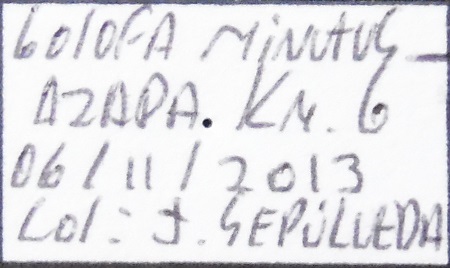 GOlOFA MiNUTUS_
AZAPA. KM. 6
06/11/2013
Col: J. SEPÚLVEDA